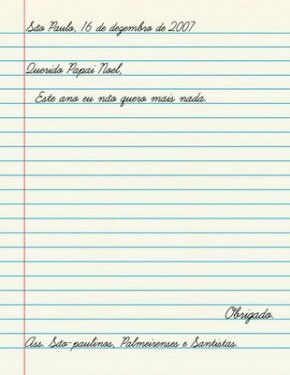 São Paulo, 16 de dezembro de 2007
Querido Papai Noel,
Este ano eu não quero mais nada.
Obrigado.
Ass. São-paulinos, Palmeirenses e Santistas.